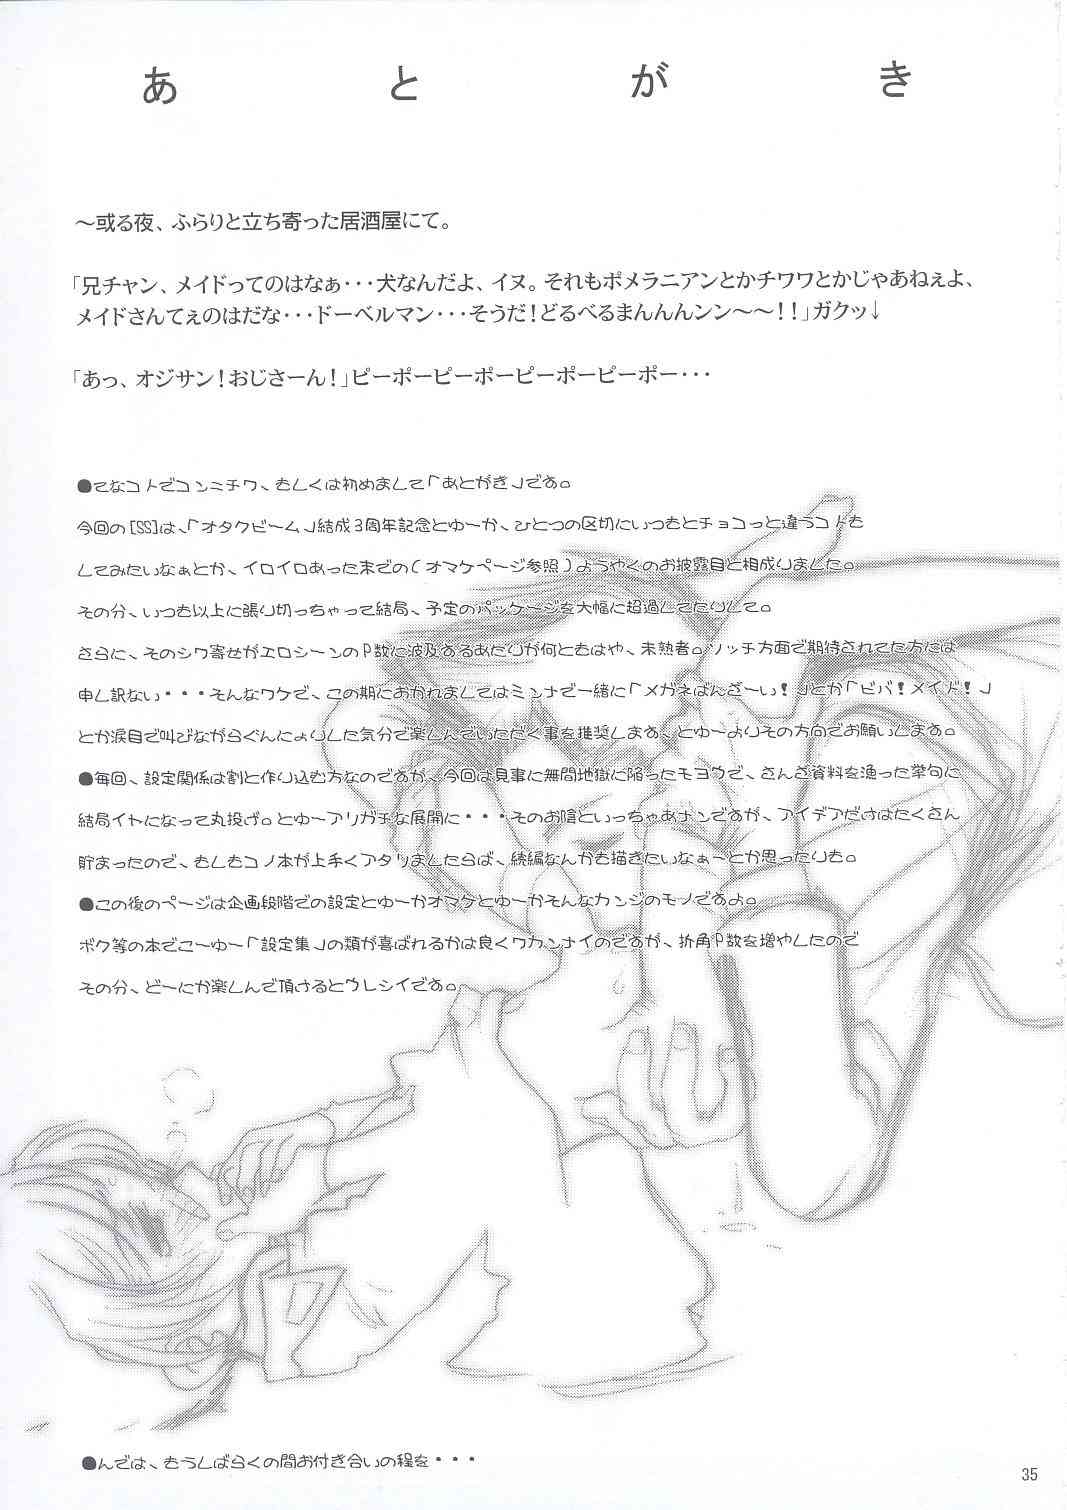 あとがき
～或る夜、ふらりと立ち寄った居酒屋にて。
「兄チャン、メイドってのはなぁ･･･犬なんだよ、イヌ。それもポメラニアンとかチワワとかじゃあねぇよ、
メイドさんてぇのはだな･･･ドーベルマン･･･そうだ！どるべるまんんんンン～～！！」ガクッ↓
「あっ、オジサン！おじさーん！」ピーポーピーポーピーポーピーポー･･･
●てなコトでコンニチワ、もしくは初めまして「あとがき」です。
今回の[SS]は、「オタクビーム」結成3周年記念とゆーか、ひとつの区切にいつもとチョコっと違うコトも
してみたいなぁとか、イロイロあった末での(オマケページ参照)ようやくのお披露目と相成りました。
その分、いつも以上に張り切っちゃって結局、予定のパッケージを大幅に超過してたりして。
さらに、そのシワ寄せがエロシーンのP数に波及するあたりが何ともはや、未熟者。ソッチ方面で期待されてた方には
申し訳ない・・・そんなワケで、この期におかれましてはミンナで一緒に「メガネばんざーい！」とか「ビバ！メイド！」
とか涙目で叫びながらぐんにょりした気分で楽しんでいただく事を推奨します、とゆーよりその方向でお願いします。
●毎回、設定関係は割と作り込む方なのですが、今回は見事に無間地獄に陥ったモヨウで、さんざ資料を漁った挙句に
結局イトになって丸投げ。とゆーアリガチな展開に・・・そのお陰といっちゃあナンですが、アイデアだけはたくさん
貯まったので、もしもコノ本が上手くアタリましたらば、続編なんかも描きたいなぁ～とか思ったりも。
●この後のページは企画段階での設定とゆーかオマケとゆーかそんなカンジのモノですよ。
ボク等の本でこーゆー「設定集」の類が喜ばれるかは良くワカンナイのですが、折角P数を増やしたので
その分、どーにか楽しんで頂けるとウレシイです。
●んでは、もうしばらくの間お付き合いの程を・・・
35